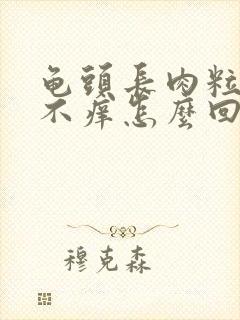 龟頭長肉粒
不痒怎麼回
穆克森